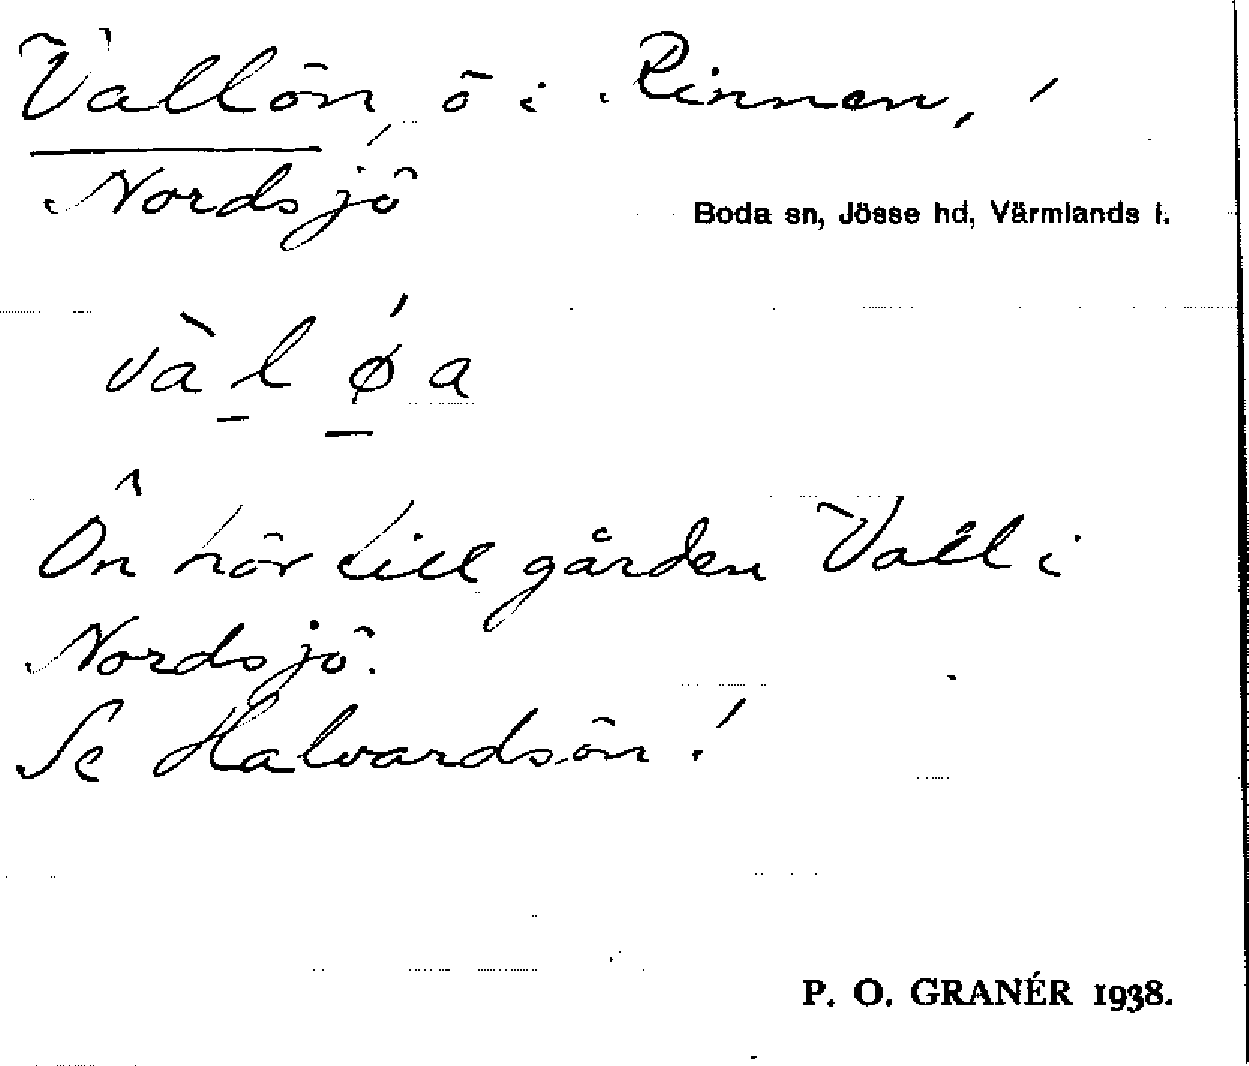 Vallön, ö i Rinnen,
Nordsjö
Boda sn, Jösse hd, Värmlands l.
và l ǿ a
Ön hör till gården Vall i
Nordsjö.
Se Halvardsön!
P. O. GRANÉR 1938.